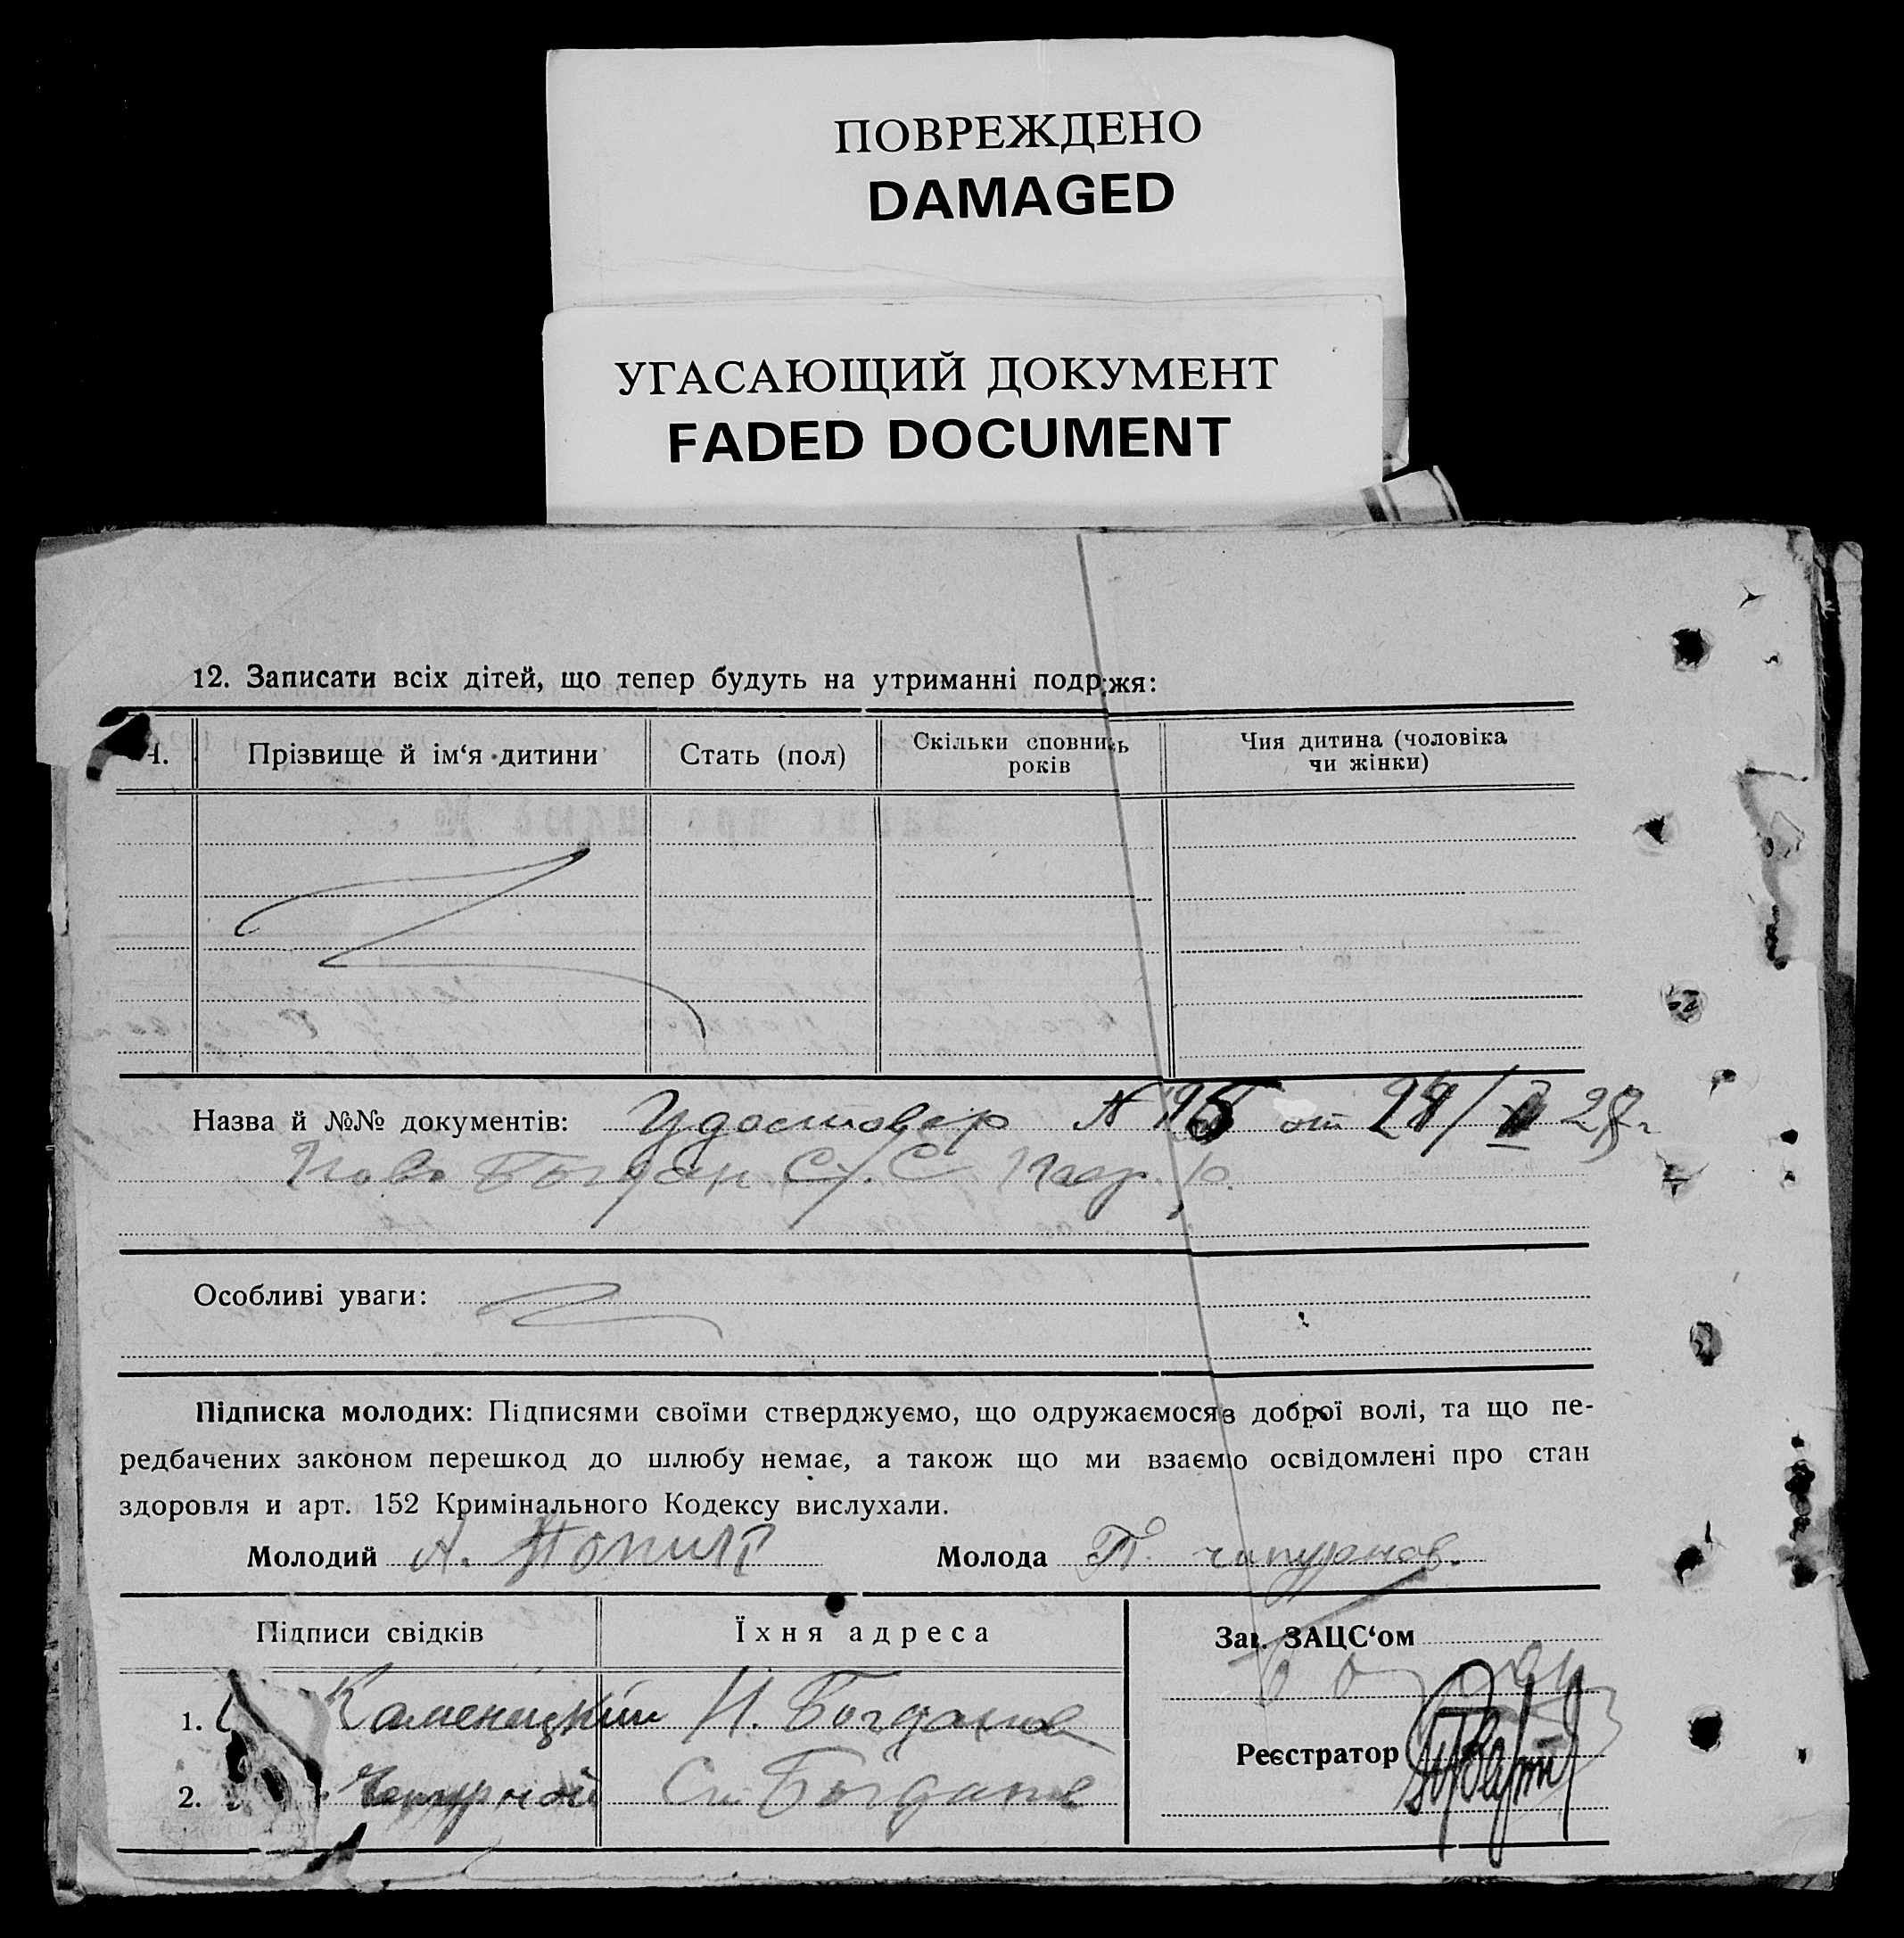 ПОВРЕЖДЕНО
DAMAGED
УГАСАЮЩИЙ ДОКУМЕНТ
FADED DOCUMENT
12. Записати всіх дітей, що тепер будуть на утриманні подр жя:
Ч. Прізвище й ім‘я дитини Стать (пол) Скільки сповнись років Чия дитина (чоловіка чи жінки)
Назва й №№ документів: Удостовер N от 28г
Ново Богдан С/.С
Особливі уваги:
Підписка молодих: Підписями своїми стверджуємо, що одружаємося з доброї волі, та що пе-
редбачених законом перешкод до шлюбу немає, а також що ми взаємно освідомлені про стан
здоровля и арт. 152 Кримінального Кодексу вислухали.
Молодий А. Молода П.
Підписи свідків Їхня адреса Зав. ЗАЦС‘ом
1. Каменецкий Н. Богдана
Реєстратор
2. Чепурной Ст. Богдана